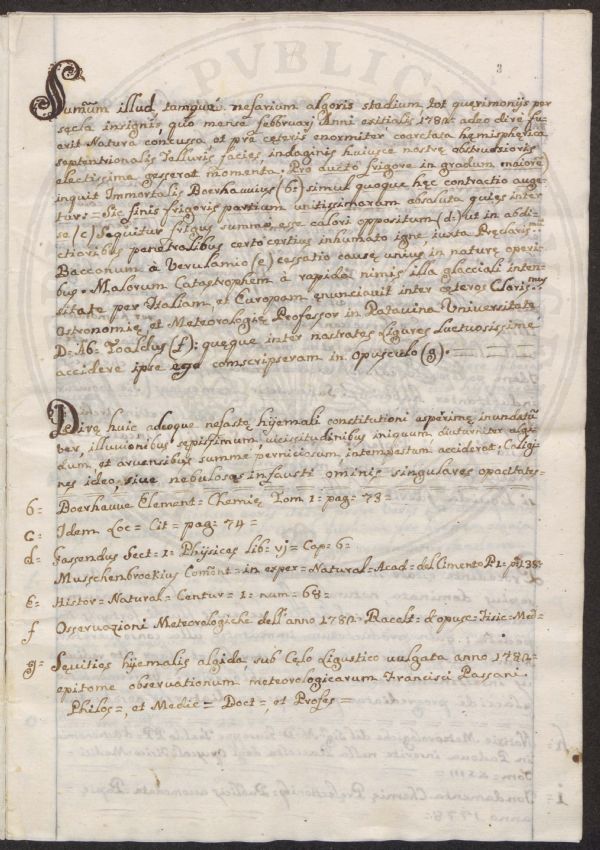 3
Sum̃um illud, tamque nefarium algoris stadium tot querimonijs per
secla insignis, quo mense febbruarj Anni exitialis 1782: adeo dire fu-
erit Natura concussa, et præ ceteris enormiter coarctata hemispherica
septentrionalis Telluris facies, indaginis huiusce nostrę obstrusioris
electissima gesserat momenta. Pro aucto frigore in gradum maiorē
inquit Immortalis Boerhauuius (b:) simul quoque hęc contractio auge-
tur: = Sic finis frigoris partium unitissimarum absoluta quies inter
se (c) Sequitur frigus summũ esse calori oppositum (d:) ut in abdi-
ctioribus penetralibus certo certius inhumato igne, iuxta Pręclaris:mũ
Bacconum à Verulamio (e) cessatio causę unius in naturę operi-
bus. Malorum Catastrophem à rapida nimis illa glacciali inten-
sitate per Italiam, et Europam enunciauit inter ceteros Claris:mus
Astronomię, et Meteorologię Professor in Patauina Uniuersitate
D: Ab: Toaldus (f): quęque inter nostrates Ligures Luctuosissime
accidere ipse ego comscripseram in opusculo (g).
Dirę huic adeoque nefastę hijemali constitutioni aspèrimę inundatũ
ver, illuuionibus sepissimum, uicissitudinibus iniquum diuturniter algi-
dum, et aruensibus summe perniciosum, intempestum acciderat; Caligi-
nes ideo, siue nebulosas infausti ominis singulares opacitates=
b= Boerhauue Element= Chemię Tom 1= pag= 73=
c= Idem Loc= Cit= pag= 74=
d= Gassendus Sect= 1= Phijsicæ Lib= vj= Cap= 6=
Musschenbroekius Com̃ent= in exper= Natural= Acad= del Cimento P.1= p: 138=
E= Histor= Natural= Centur= 1= num= 68=
f Osseruazioni Meteorologiche dell'anno 1782. Raccolt= d'opusc= Fisic= Med=
g= Sęuities hijemalis algida, sub Cęlo Ligustico uulgata anno 1782=
epitome obseruationum meteorologicarum Francisci Passani
Philos=, et Medic= Doct=, et Profes=